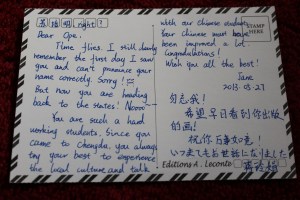 right?
Dear Ope,
Time flies, I still clearly
remember the first day I saw
you and can't pronounce your
name correctly. Sorry!
But now you are heading
back to the states! Nooo~
You are such a hard
working students. Since you
came to Chengdu, you always
try your best to experience
the local culture and talk
with our Chinese students.
Your Chinese must have
been improved a lot.
Congratulations!
Wish you all the best!
Jane
2013.03.27
STAMP
HERE
勿忘我!
希望早日看到你出版
的画!
祝你万事如意!
いつまでもお世話になりました
Editions A. Leconte